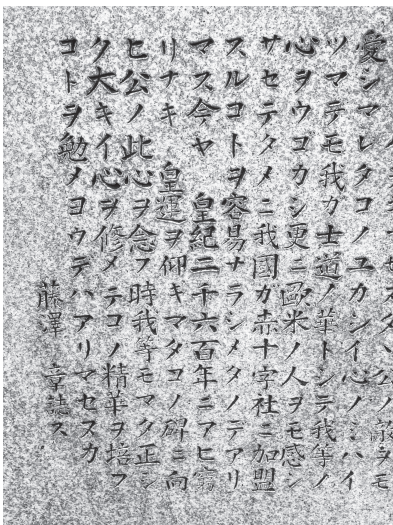 公ノ敵ヲモ
愛シマレタコノユカシイ心ノミハイ
ツマテモ我カ士道ノ華トシテ我等ノ
心ヲウゴカシ更ニ歐米ノ人ヲモ感シ
サセテタメニ我國ガ赤十字社ニ加盟
スルコトヲ容易ナラシメタノテアリ
マス今ヤ 皇紀二千六百年ニアヒ窮
リナキ 皇運ヲ仰キマタコノ碑ニ向
ヒ公ノ此心ヲ念フ時我等モマタ正シ
ク大キイ心ヲ修メテコノ精華ヲ培フ
コトヲ勉メヨウテハアリマセスカ
藤澤 章誌ス